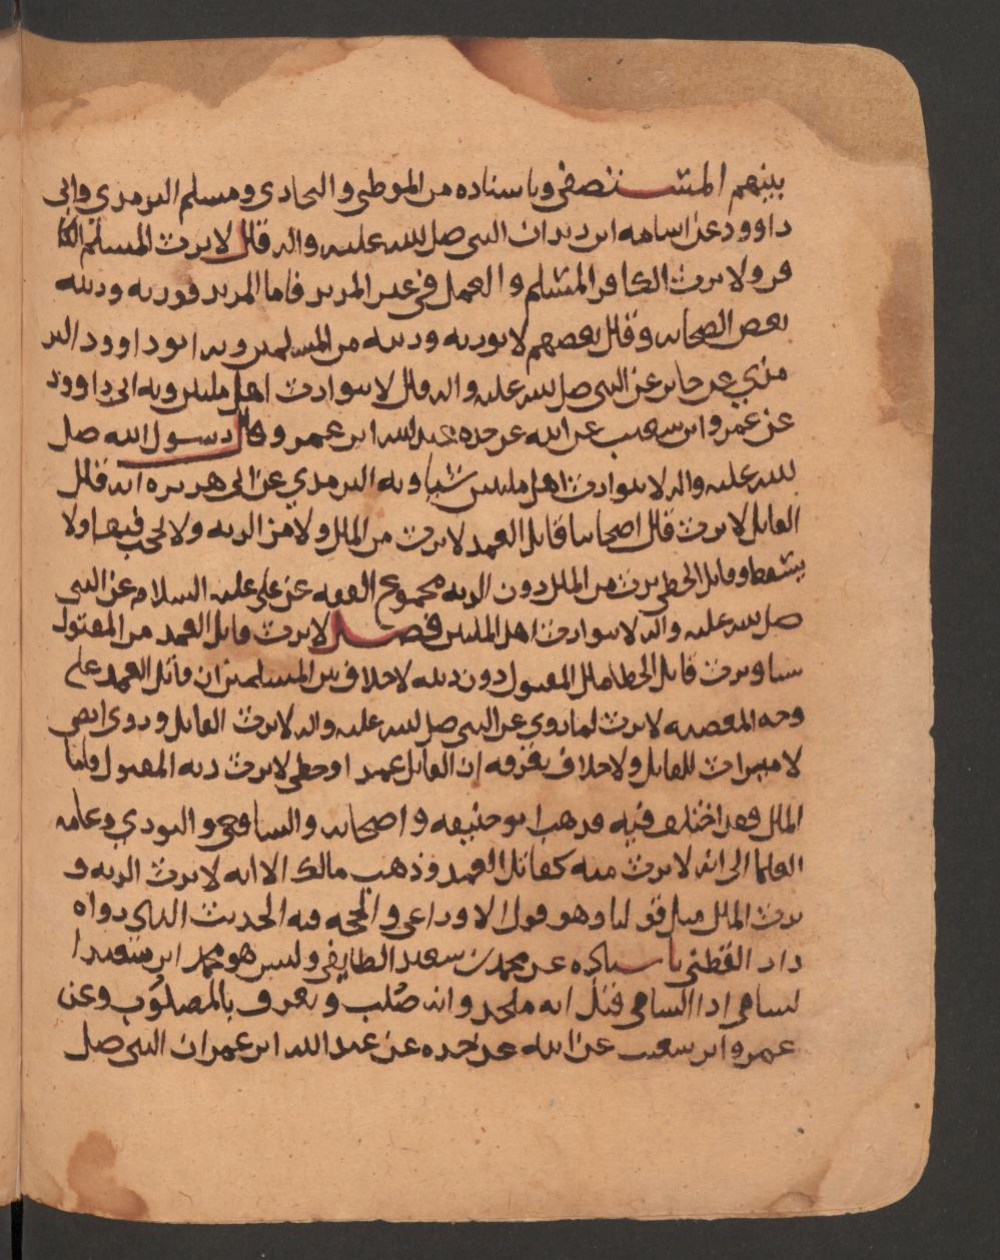 بينهم المستصفى وباسناده من الموطى والبخاري ومسلم الترمدي وابى
داوود عن اسامه ابن زيد ان النبي صل لله عليه واله قال لا يرث المسلم الكا
فر ولا يرث الكافر المسلم والعمل في غير المرتد فاما المرتد فورثه ورثته
بعض الصحابه وقال بعضهم لا يورثه ورثته من المسلمين وبه ابو داوود التر
مذي عن جابر عن النبي صل لله عليه واله قال لا يتوارث اهل ملتين وبه ابي داوود
عن عمرو ابن سعيب عن ابيه عن جده عبد الله ابن عمرو قال رسول الله صل
لله عليه واله لا يتوارث اهل ملتين شيا وبه الترمدي عن ابي هريره انه قال
القاتل لا يرث قال اصحابنا قاتل العمد لا يرث من المال ولا من الديه ولا يحجب فيها ولا
يسقط وقاتل الخطى يرث من المال دون الديه مجموع الفقه عن علي عليه السلام عن النبي
صل لله عليه واله لا يتوارث اهل الملتين فصل لا يرث قاتل العمد من المقتول
سا ويرث قاتل الخطا مال المقتول دون ديته لا خلاف بين المسلمين ان قاتل العمد على
وجه المعصيه لا يرث لما روي عن النبي صل لله عليه واله لا يرث القاتل وروى ايضى
لا ميراث للقاتل ولا خلاف نعرفه ان القاتل عمد او خطى لا يرث ديه المقتول واما
المال فقد اختلف فيه فدهب ابو حنيفه واصحابه والسافعي والثوري وعامه
العلما الى انه لا يرث منه كقاتل العمد وذهب مالك الا انه لا يرث الديه و
يرث المال مثل قولنا وهو قول الاوزاعي والحجه فيه الحديث الذي رواه
دار القطني باسناده عن محمد بن سعيد الطايفي وليس هو محمد ابن سعيد ا
لسامي اذ السامي قتل انه ملحد وانه صُلب ويعرف بالمصلوُب وعن
عمرو ابن سعيب عن ابيه عن جده عن عبد الله ابن عمر ان النبي صل